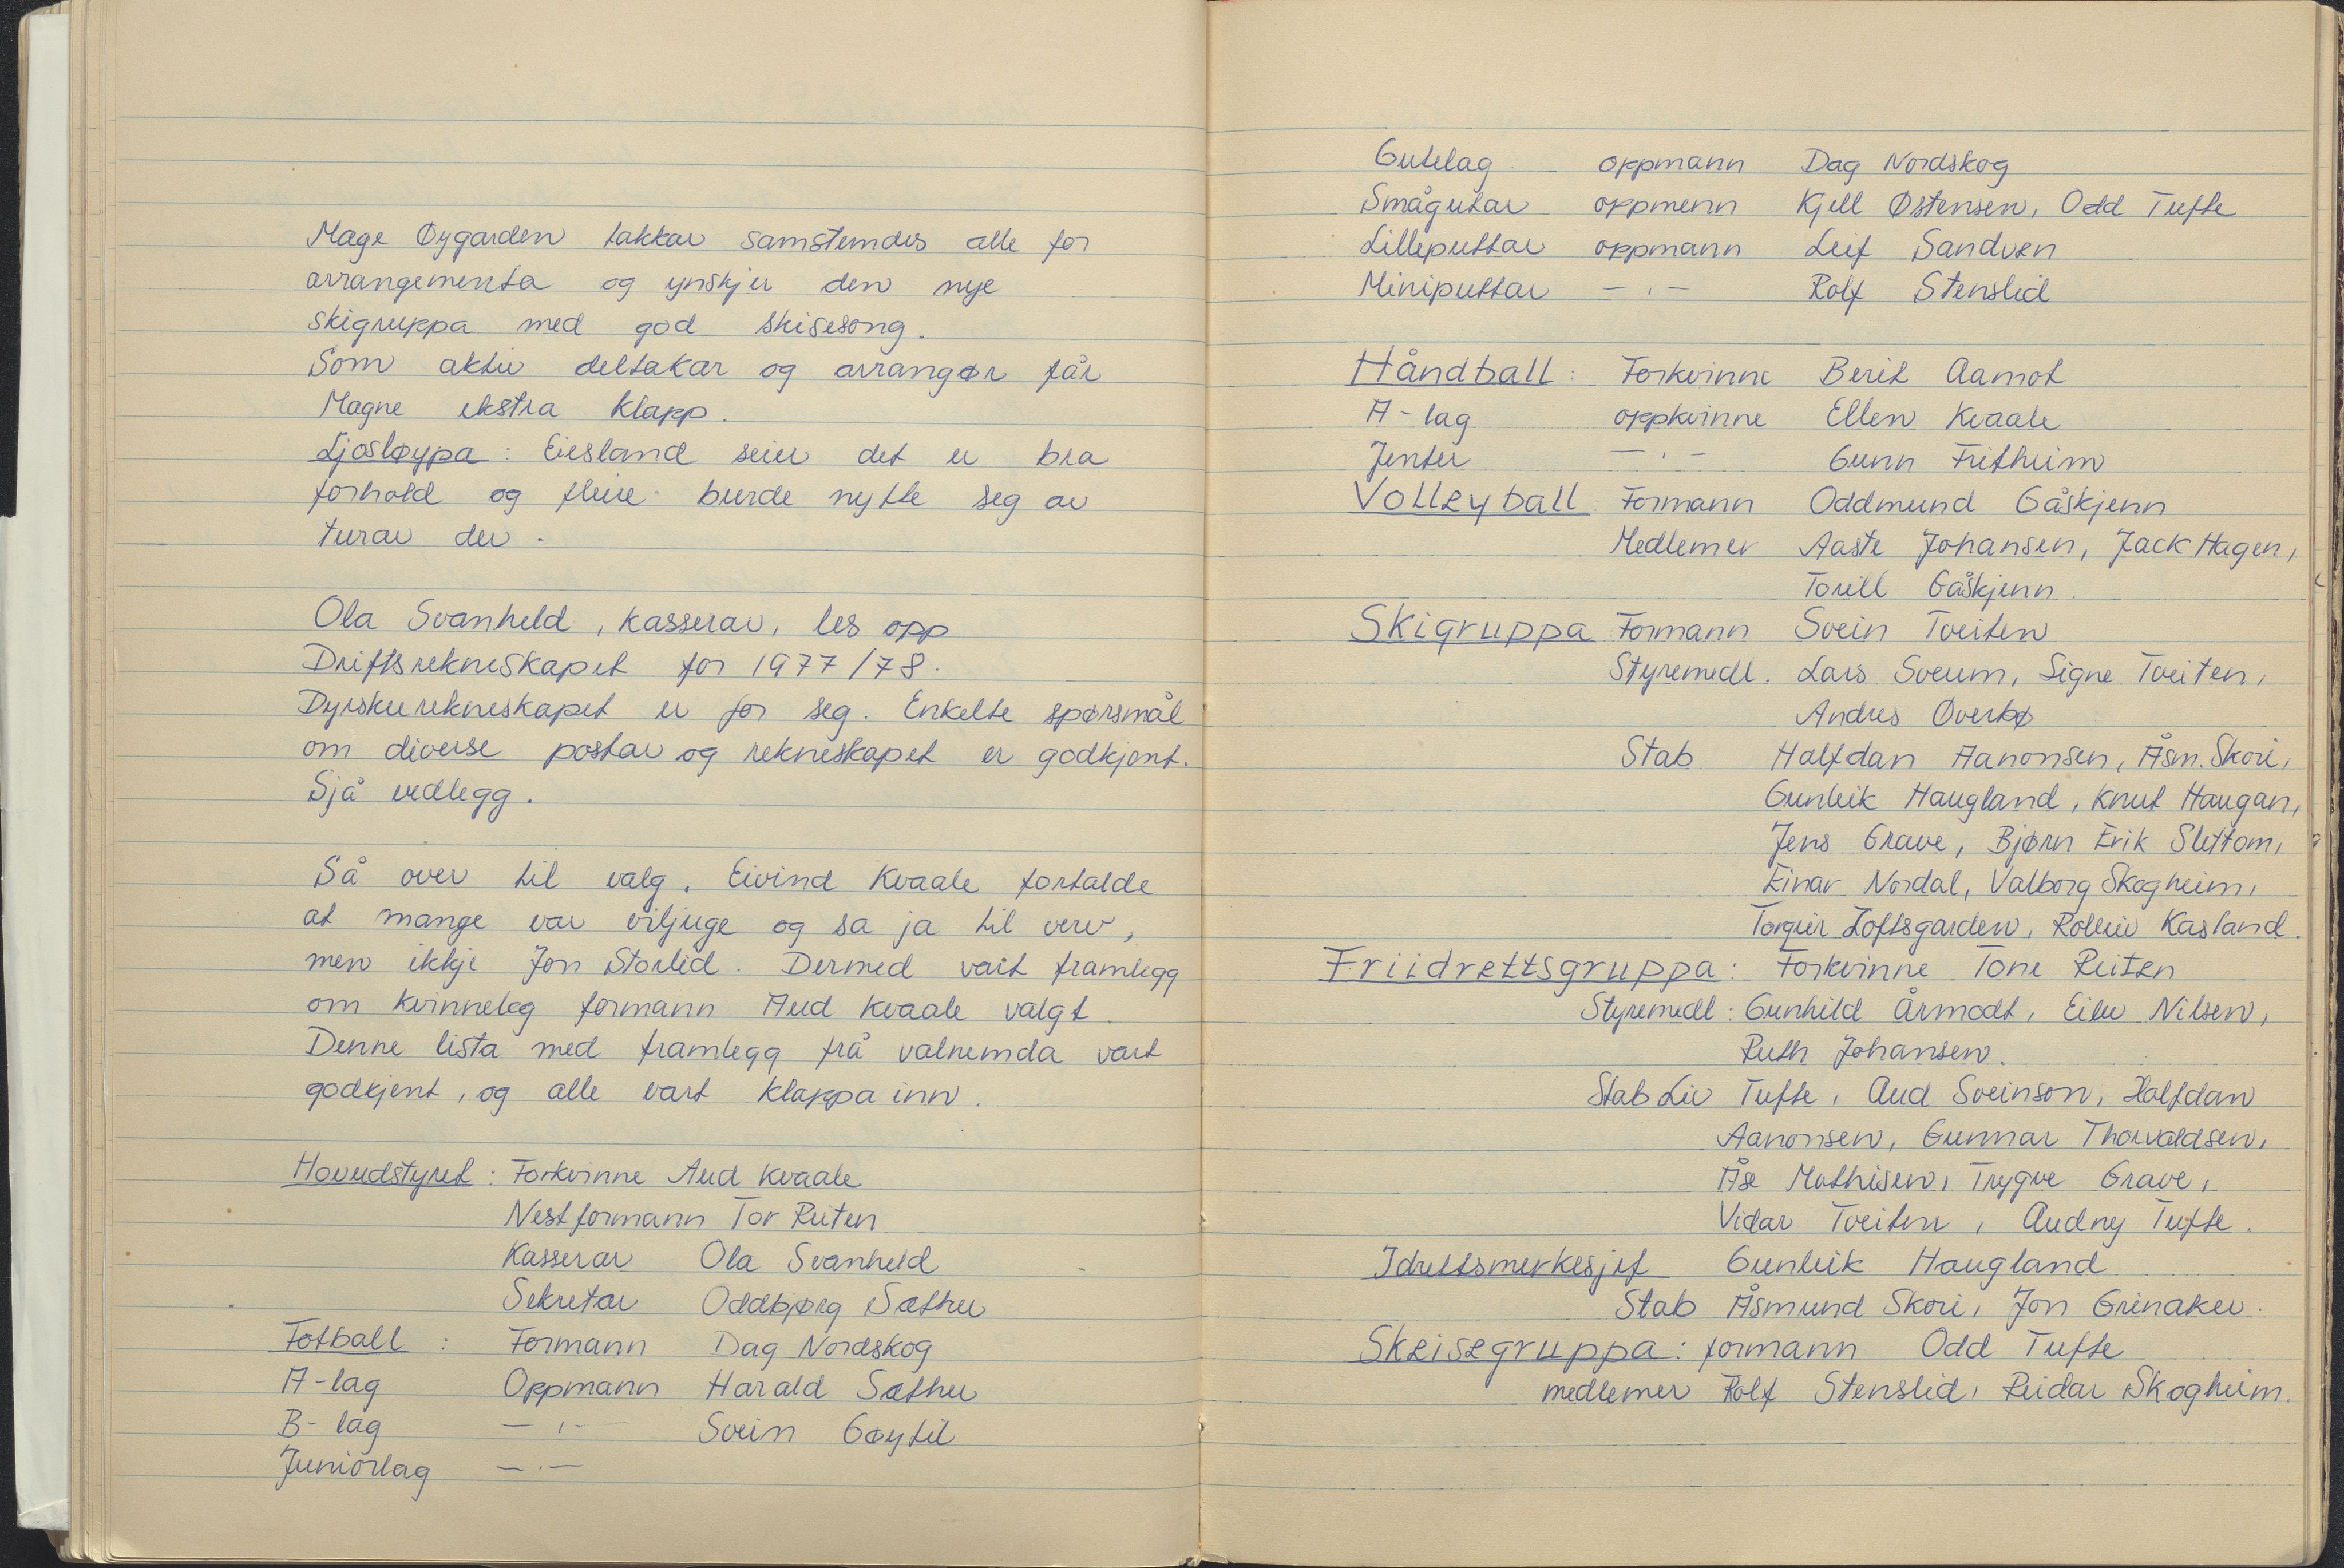 Mage Øygarden takkar samstemdes alle for
arrangementa og ynskjer den nye
skigruppa med god skisesong.
Som aktiv deltakar og arrangør får
Magne ekstra klapp.
Ljosløypa: Eiesland seier det er bra
forhold og fleire burde nytte seg av
turar der.
Ola Svanheld, kasserar, les opp
Driftsrekneskapet for 1977/78.
Dyrskurekneskapet er for seg. Enkelte spørsmål
om diverse postar og rekneskapet er godkjent.
Sjå vedlegg.
Så over til valg. Eivind Kvaale fortalde
at mange var viljuge og sa ja til verv,
men ikkje Jon Storlid. Dermed vart framlegg
om kvinneleg formann Aud Kvaale valgt.
Denne lista med framlegg frå valnemda vart
godkjent, og alle vart klappa inn.
Hovudstyret: Forkvinne Aud Kvaale
Nestformann Tor Reiten
Kasserar Ola Svanheld
Sekretar Oddbjørg Sæther
Fotball: Formann Dag Nordskog
A-lag Oppmann Harald Sæther
B-lag -"- Svein Gøytil
Juniorlag -"-
Gutelag oppmann Dag Nordskog
Smågutar oppmenn Kjell Østensen, Odd Tufte
Lilleputtar oppmann Leif Sandven
Miniputtar -"- Rolf Stenslid
Håndball: Forkvinne Berit Aamot
A-lag oppkvinne Ellen Kvaale
Jenter -"- Gunn Fritheim
Volleyball: Formann Oddmund Gåskjenn
Medlemer Aaste Johansen, Jack Hagen,
Torill Gåskjenn.
Skigruppa Formann Svein Tveiten
Styremedl. Lars Sveum, Signe Tveiten,
Andres Overbø
Stab Halfdan Aanonsen, Åsm. Skori,
Gunleik Haugland, Knut Haugan,
Jens Grave, Bjørn Erik Slettom,
Einar Nordal, Valborg Skogheim,
Torgeir Loftsgarden, Rolleiv Kasland.
Friidrettsgruppa: Forkvinne Tone Reiten
Styremedl: Gunhild Århmodt, Eilev Nilsen,
Ruth Johansen.
Stab Liv Tufte, Aud Sveinson, Halfdan
Aanonsen, Gunnar Thorvaldsen,
Åse Mathisen, Trygve Grave,
Vidar Tveiten, Audny Tufte.
Idrettsmerkesjef Gunleik Haugland
Stab Åsmund Skori, Jon Grinaker.
Skeisegruppa: formann Odd Tufte
medlemer Rolf Stenslid, Reidar Skogheim.